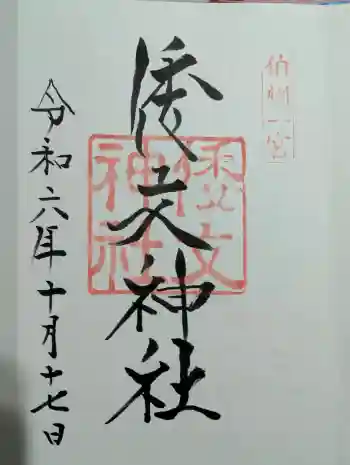 伯州一宮
倭文神社
倭文
神社
令和六年十月十七日